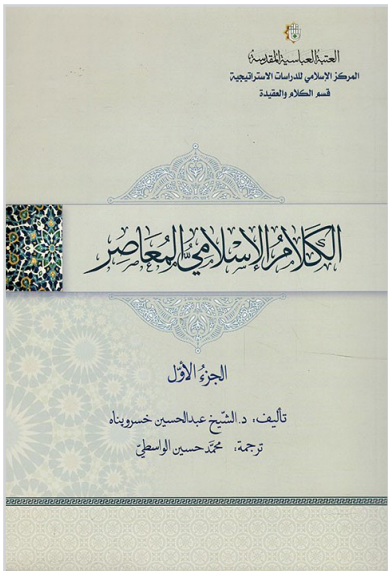 العتبة العباسية المقدسة
المركز الاسلامي للدراسات الاستراتيجية
قسم الكلام والعقيدة
الكلام الإسلامي المعاصر
الجزء الأوّل
تأليف: د. الشيخ عبدالحسين خسروپناه
ترجمة: محمّد حسين الواسطيّ